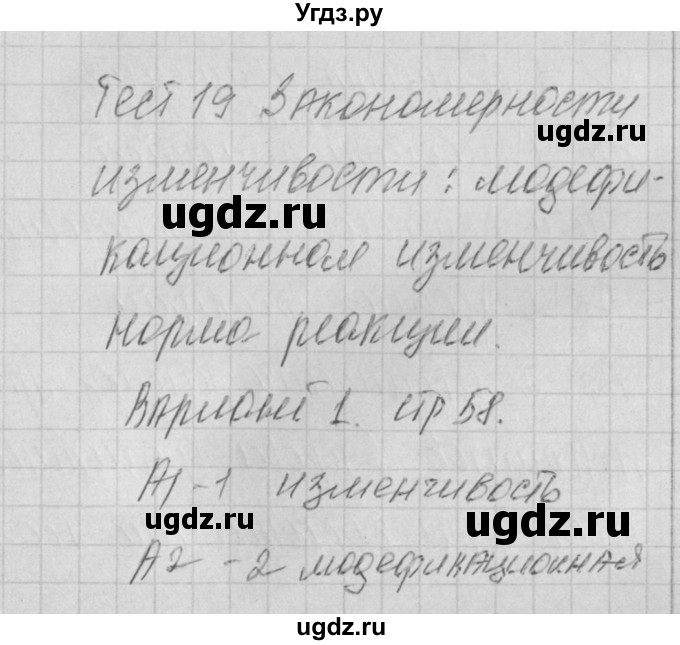 Угдз.ру
Тест 19 Закономерности
ugdz.ru
изменчивости: модефи-
ugdz.ru
кационная изменчивость
норма реакции.
Вариант 1. стр 58.
А1 - 1 изменчивость
ugdz.ru
ugdz.ru
А2 - 2 модефикационная
ugdz.ru